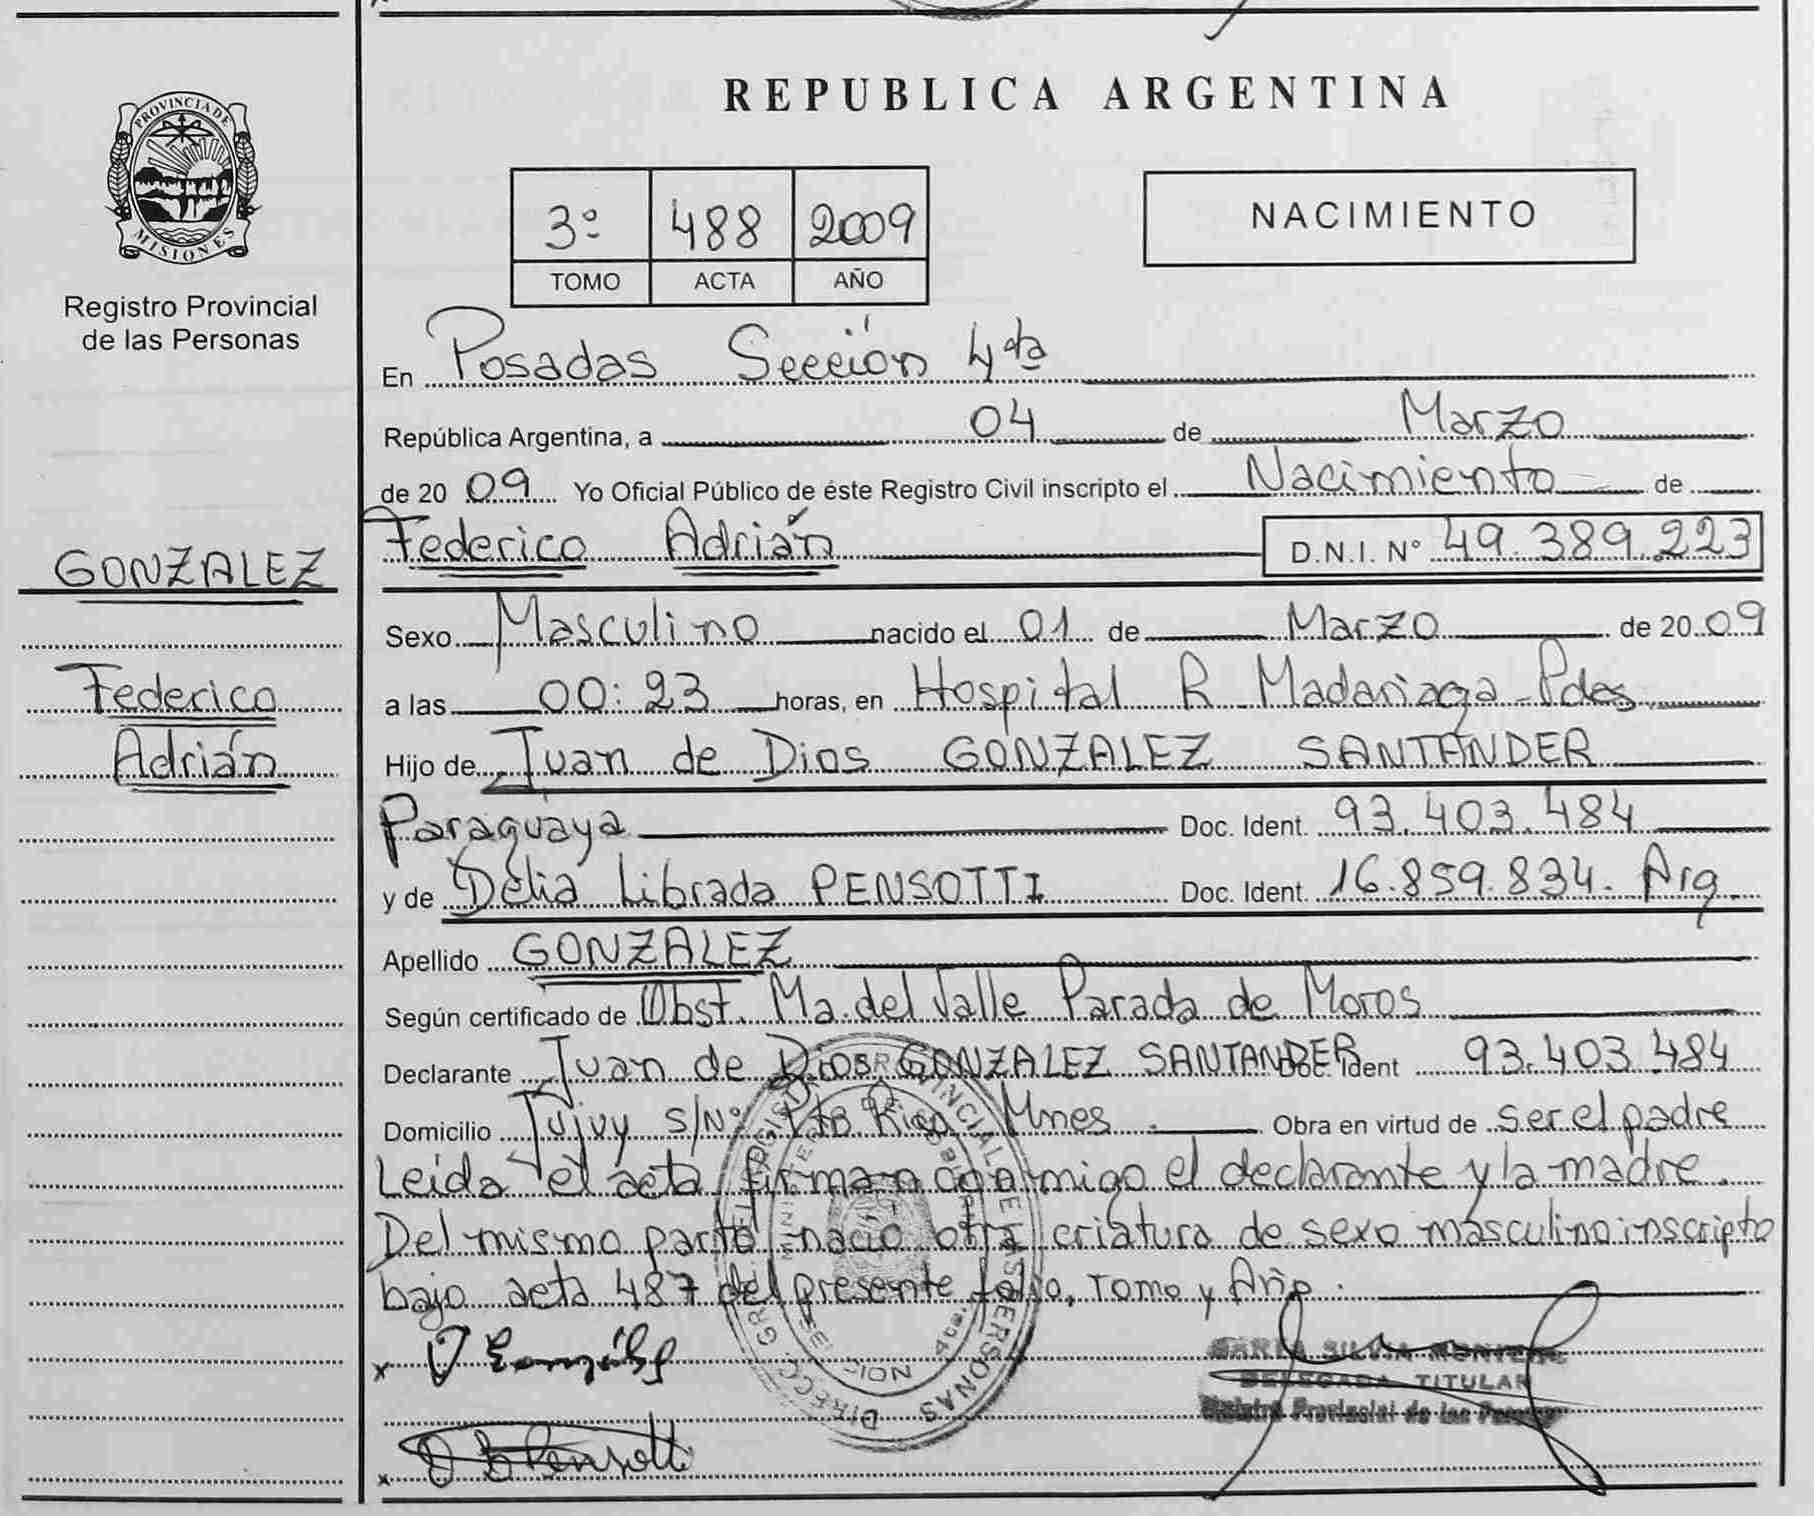 REPUBLICA ARGENTINA
PROVINCIA DE
MISIONES
Registro Provincial
de las Personas
3º 488 2009
TOMO ACTA AÑO
NACIMIENTO
En Posadas Sección 4ta
República Argentina, a 04 de Marzo
de 20 09 Yo Oficial Público de éste Registro Civil inscripto el Nacimiento de
GONZALEZ
Federico
Adrián
Federico Adrián D.N.I. Nº 49.389.223
Sexo Masculino nacido el 01 de Marzo de 20 09
a las 00:23 horas, en Hospital R Madariaga - Pdas
Hijo de Juan de Dios GONZALEZ SANTANDER
Paraguaya Doc. Ident. 93.403.484
y de Delia Librada PENSOTTI Doc. Ident. 16.859.834. Arg.
Apellido GONZALEZ
Según certificado de Obst. Ma. del Valle Parada de Moros
Declarante Juan de Dios GONZALEZ SANTANDER Doc. Ident 93.403.484
Domicilio Jujuy S/Nº Pto Rico Mnes. Obra en virtud de ser el padre
Leída el acta firman conmigo el declarante y la madre.
Del mismo parto nació otra criatura de sexo masculino inscripto
bajo acta 487 del presente folio, Tomo y Año.
x González
x Pensotti
DELEGADA TITULAR
Registro Provincial de las Personas